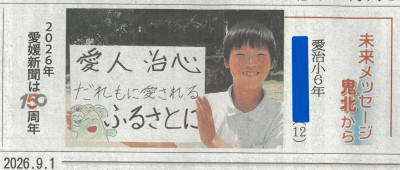 未来メッセージ
鬼北から
愛治小6年
(12)
愛人 治心
だれもに愛される
ふるさとに
2026年
愛媛新聞は
150周年
2026.9.1